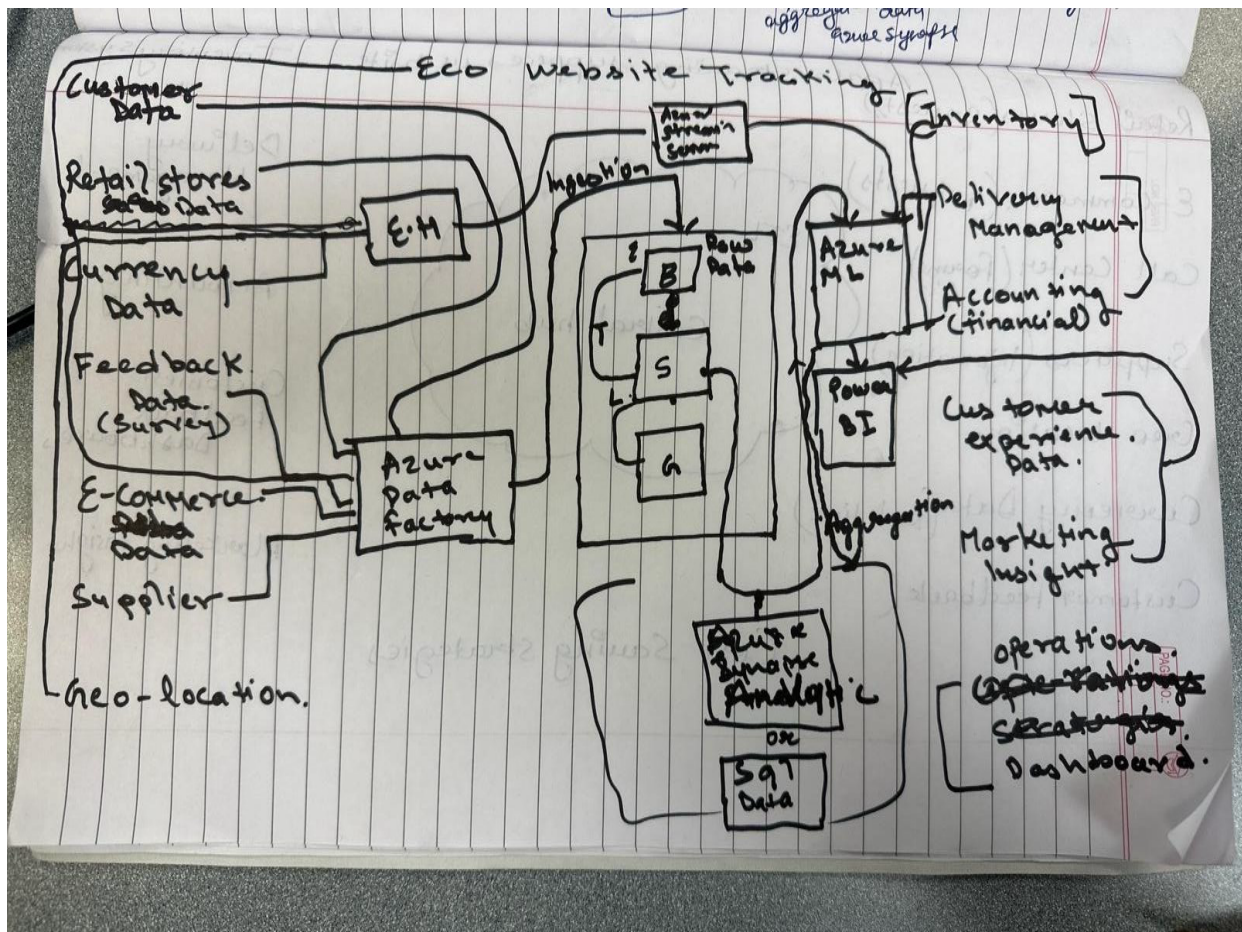 aggregate data
azure synapse
Eco Website Tracking
Customer
Data
Retail stores
Data
Currency
Data
Feedback
Data.
(Survey)
E-Commerce.
Data
Supplier
Geo-location.
E.H
Azure
Data
Factory
Ingestion
Azure
Stream
E
Raw
Data
B
T
S
L
G
Azure
ML
Power
BI
Aggregation
Azure
Analytic
or
Sql
Data
[Inventory]
Delivery
Management
Accounting
(financial)
Customer
experience.
Data.
Marketing
Insight
operations.
Dashboard.